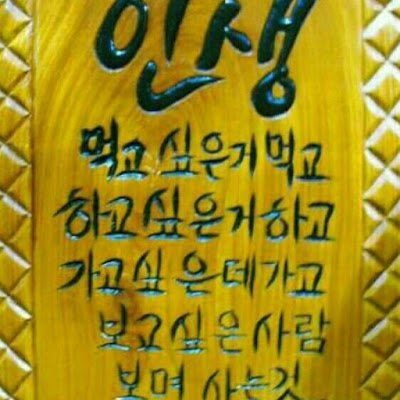 인생
먹고싶은거먹고
하고싶은거하고
가고싶은데가고
보고싶은사람
보며 사는것